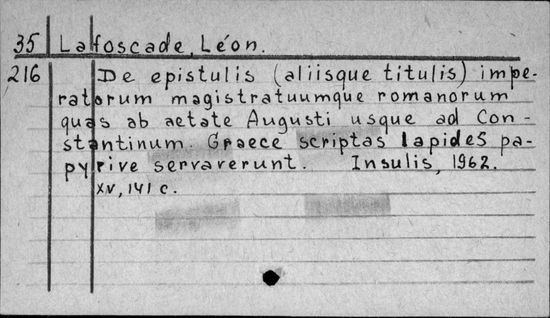 35 Lafoscade, Léon.
216 De epistulis (aliisque titulis) impe-
ratorum magistratuumque romanorum
quas ab aetate Augusti usque ad Con-
stantinum. Graece scriptas lapides pa-
pyrive servaverunt. Insulis, 1962.
XV, 141 c.